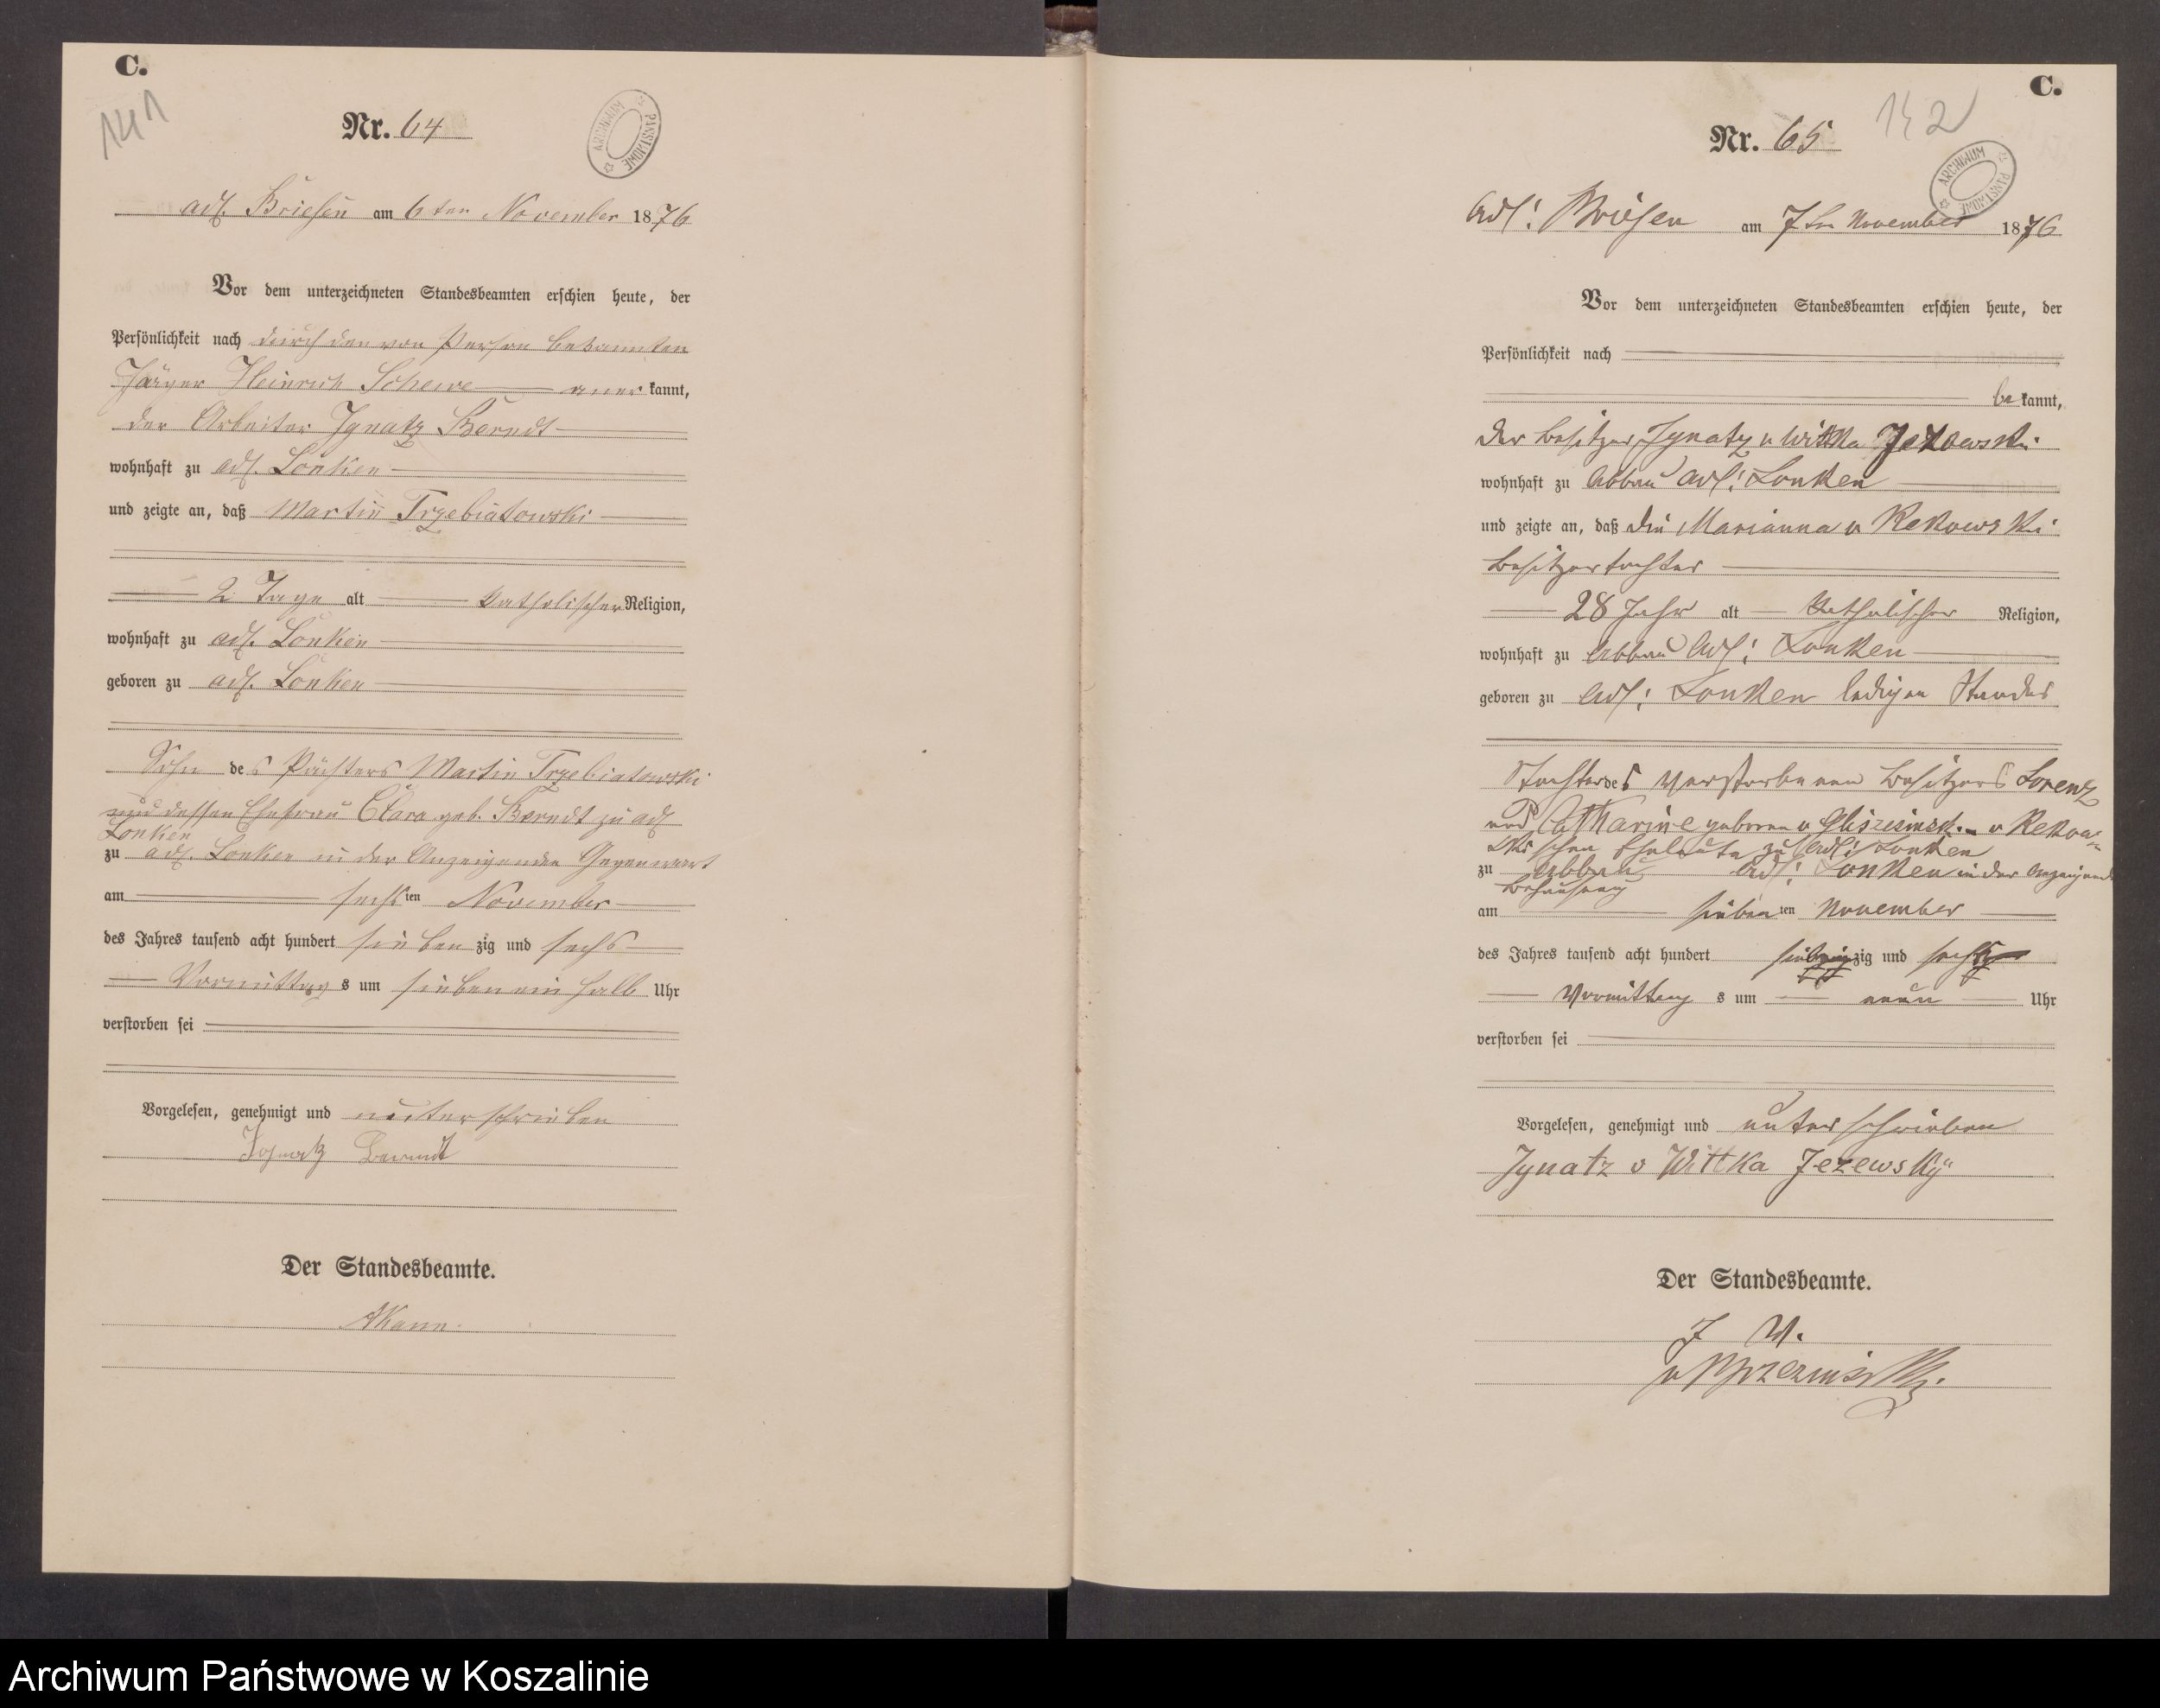 C.
141
Nr. 64
ARCHIWUM PAŃSTWOWE
adl. Briesen am 6ten November 1876
Vor dem unterzeichneten Standesbeamten erschien heute, der
Persönlichkeit nach durch den von Person bekannten
Jäger Heinrich Schewe anerkannt,
der Arbeiter Ignatz Berndt
wohnhaft zu adl. Lonken
und zeigte an, daß Martin Trzebiatowski
2 Tage alt katholischer Religion,
wohnhaft zu adl. Lonken
geboren zu adl. Lonken
Sohn des Pächters Martin Trzebiatowski
und dessen Ehefrau Clara geb. Berndt zu adl
Lonken
zu adl. Lonken in der Anzeigenden Gegenwart
am sechsten November
des Jahres tausend acht hundert siebenzig und sechs
Vormittags um sieben ein halb Uhr
verstorben sei
Vorgelesen, genehmigt und unterschrieben
Ignatz Berndt
Der Standesbeamte.
C.
142
Nr. 65
ARCHIWUM PAŃSTWOWE
Adl: Briesen am 7ten November 1876
Vor dem unterzeichneten Standesbeamten erschien heute, der
Persönlichkeit nach
bekannt,
der Besitzer Ignatz v Wittka Jezowski
wohnhaft zu Abbau Adl: Lonken
und zeigte an, daß die Marianna v Rekowski
Besitzertochter
28 Jahr alt Katholischer Religion,
wohnhaft zu Abbau Adl: Lonken
geboren zu Adl: Lonken ledigen Standes
Tochter des verstorbenen Besitzers Lorenz
und Catharine geboren v v Rekow-
skischen Eheleute zu Adl: Lonken
zu Abbau Adl: Lonken in der Anzeigende
Behausung
am siebenten November
des Jahres tausend acht hundert siebenzig und sechs
Vormittags um neun Uhr
verstorben sei
Vorgelesen, genehmigt und unterschrieben
Ignatz v Wittka Jezewsky
Der Standesbeamte.
J V.
Archiwum Państwowe w Koszalinie